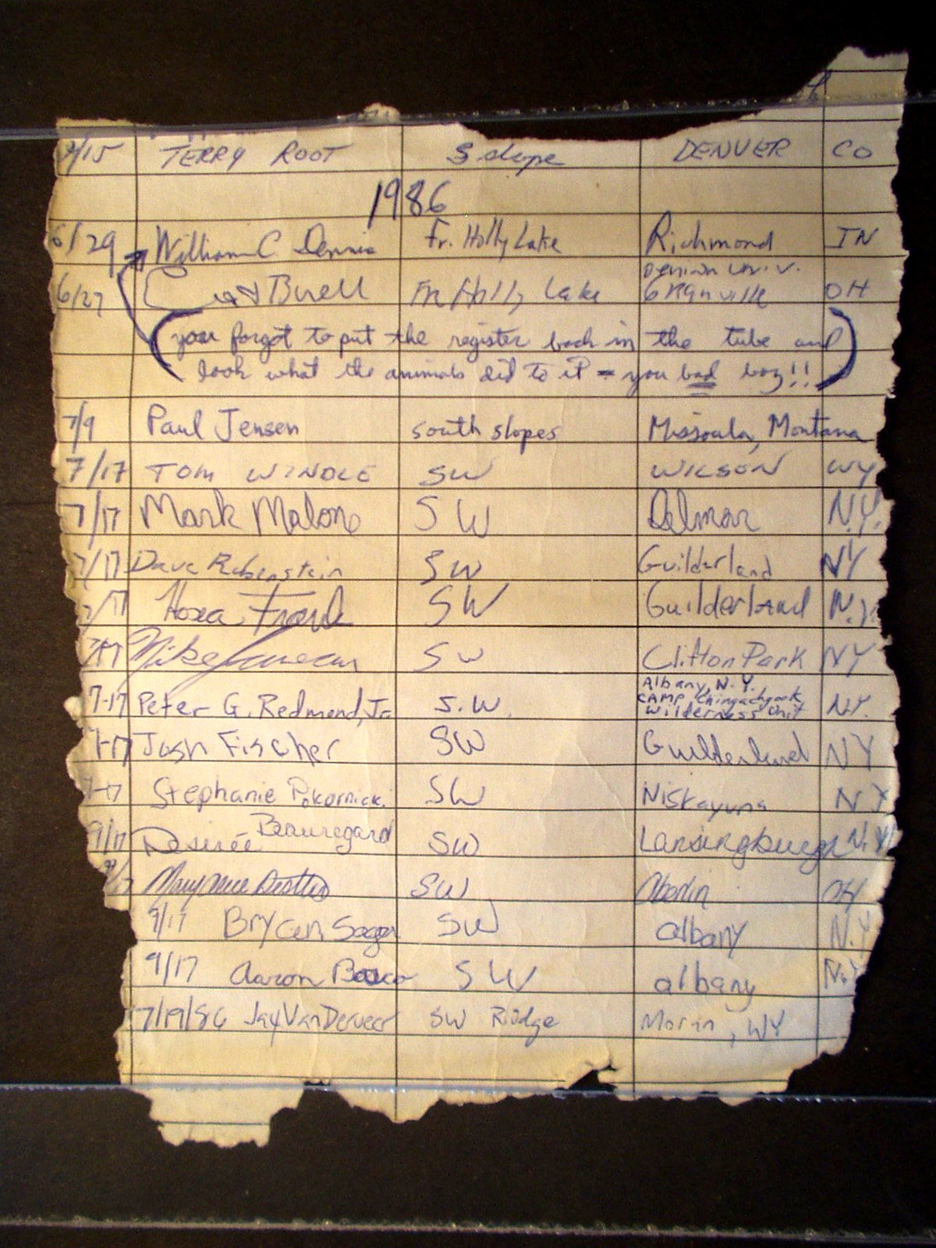 /15 TERRY ROOT S slope DENVER CO
1986
6/29 William C. Dennis Fr. Holly Lake Richmond IN
Denison Univ.
6/27 Buell Fr. Holly Lake Granville OH
(your forgot to put the register back in the tube and
look what the animals did to it = you bad boy!!)
7/9 Paul Jensen south slopes Missoula, Montana
7/17 TOM WINDLE SW WILSON WY
7/17 Mark Malone SW Delmar N.Y.
7/17 Dave Rubenstein SW Guilderland NY
/17 Hosea Frank SW Guilderland N.Y.
Mike SW Clifton Park NY
Albany, N.Y.
7-17 Peter G. Redmond, Jr. S.W. CAMP Chingachgook N.Y.
Wilderness Unit
7-17 Josh Fischer SW Guilderland NY
-17 Stephanie Pokornicki SW Niskayuna NY
Beauregard
9/17 Desireé SW Lansingburgh N.Y.
Mary SW Oberlin OH
9/17 Brycen Sager SW albany N.Y
9/17 Aaron SW albany N.Y
7/19/86 Jay VanDerveer SW Ridge Moran, WY